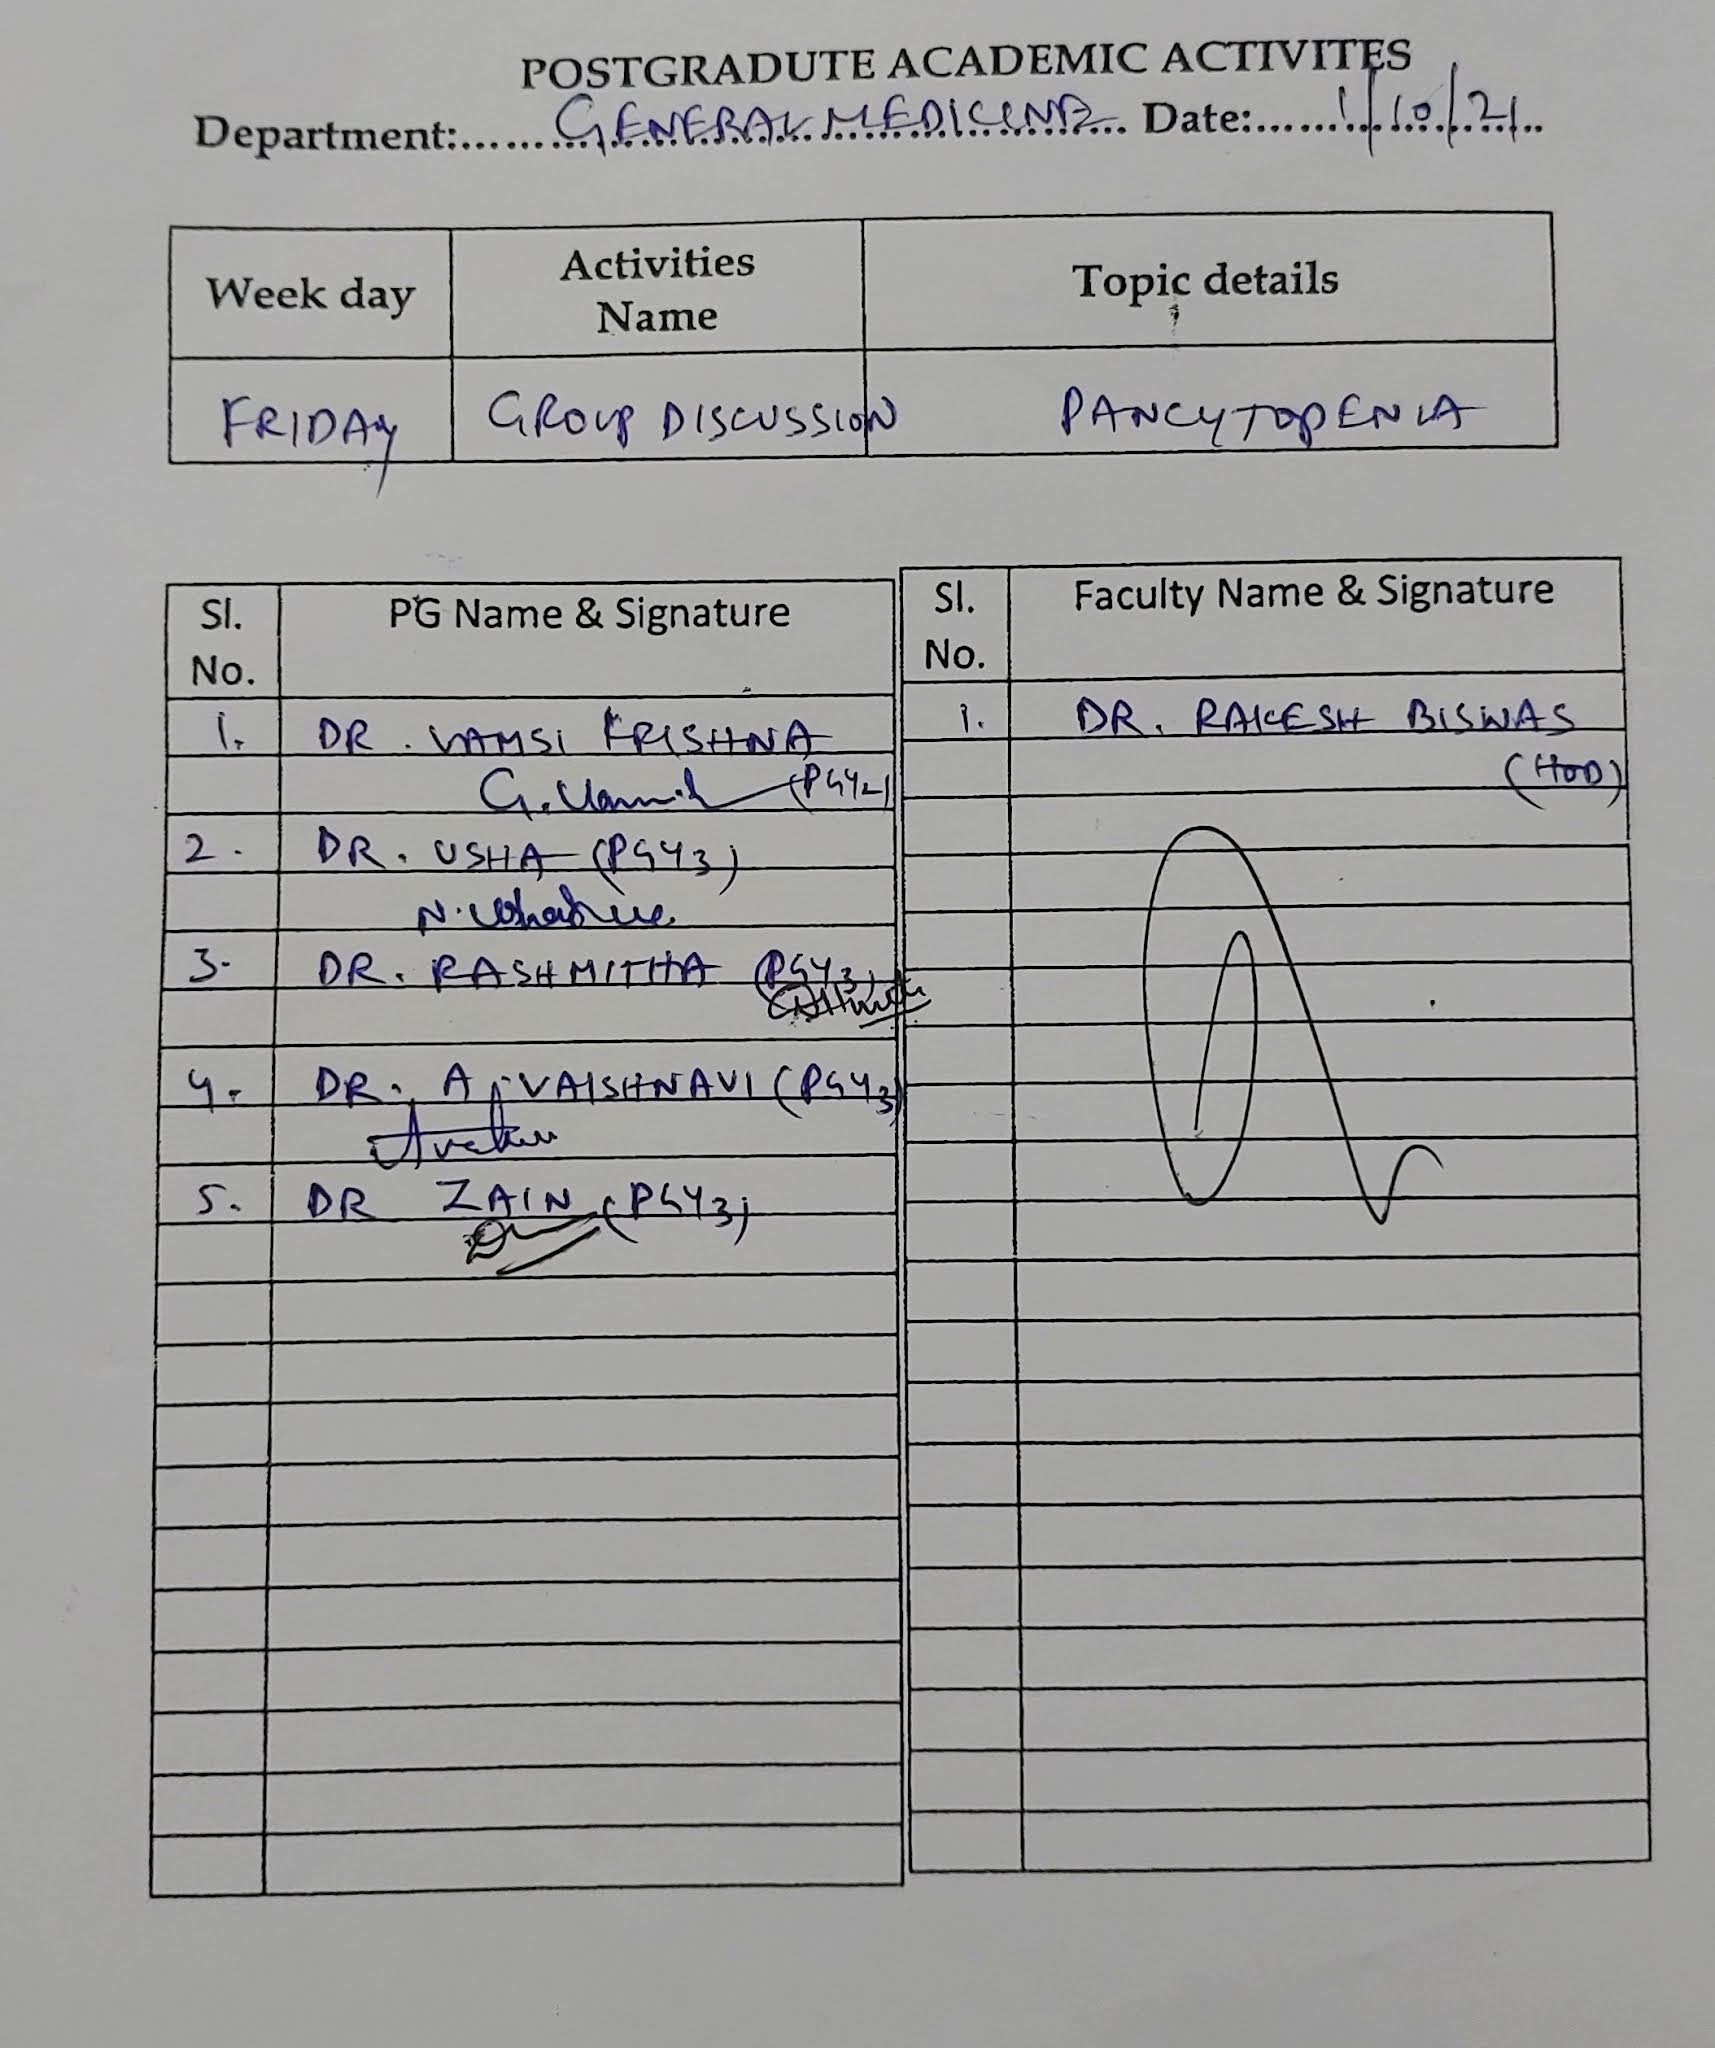 POSTGRADUTE ACADEMIC ACTIVITES
Department:.........GENERAL MEDICINE... Date:......1/10/21..
Week day
Activities
Name
Topic details
FRIDAY
GROUP DISCUSSION
PANCYTOPENIA
Sl.
No.
PG Name & Signature
1.
DR. VAMSI KRISHNA
(PGY2)
2.
DR. USHA (PGY3)
3.
DR. RASHMITHA (PGY3)
4.
DR. A. VAISHNAVI (PGY3)
5.
DR ZAIN (PGY3)
Sl.
No.
Faculty Name & Signature
1.
DR. RAKESH BISWAS
(HOD)